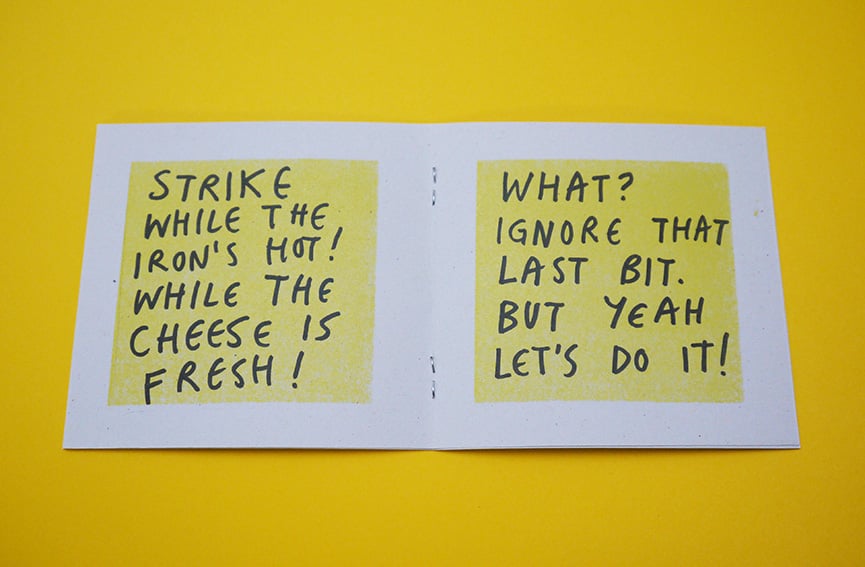 STRIKE
WHILE THE
IRON'S HOT!
WHILE THE
CHEESE IS
FRESH!
WHAT?
IGNORE THAT
LAST BIT.
BUT YEAH
LET'S DO IT!